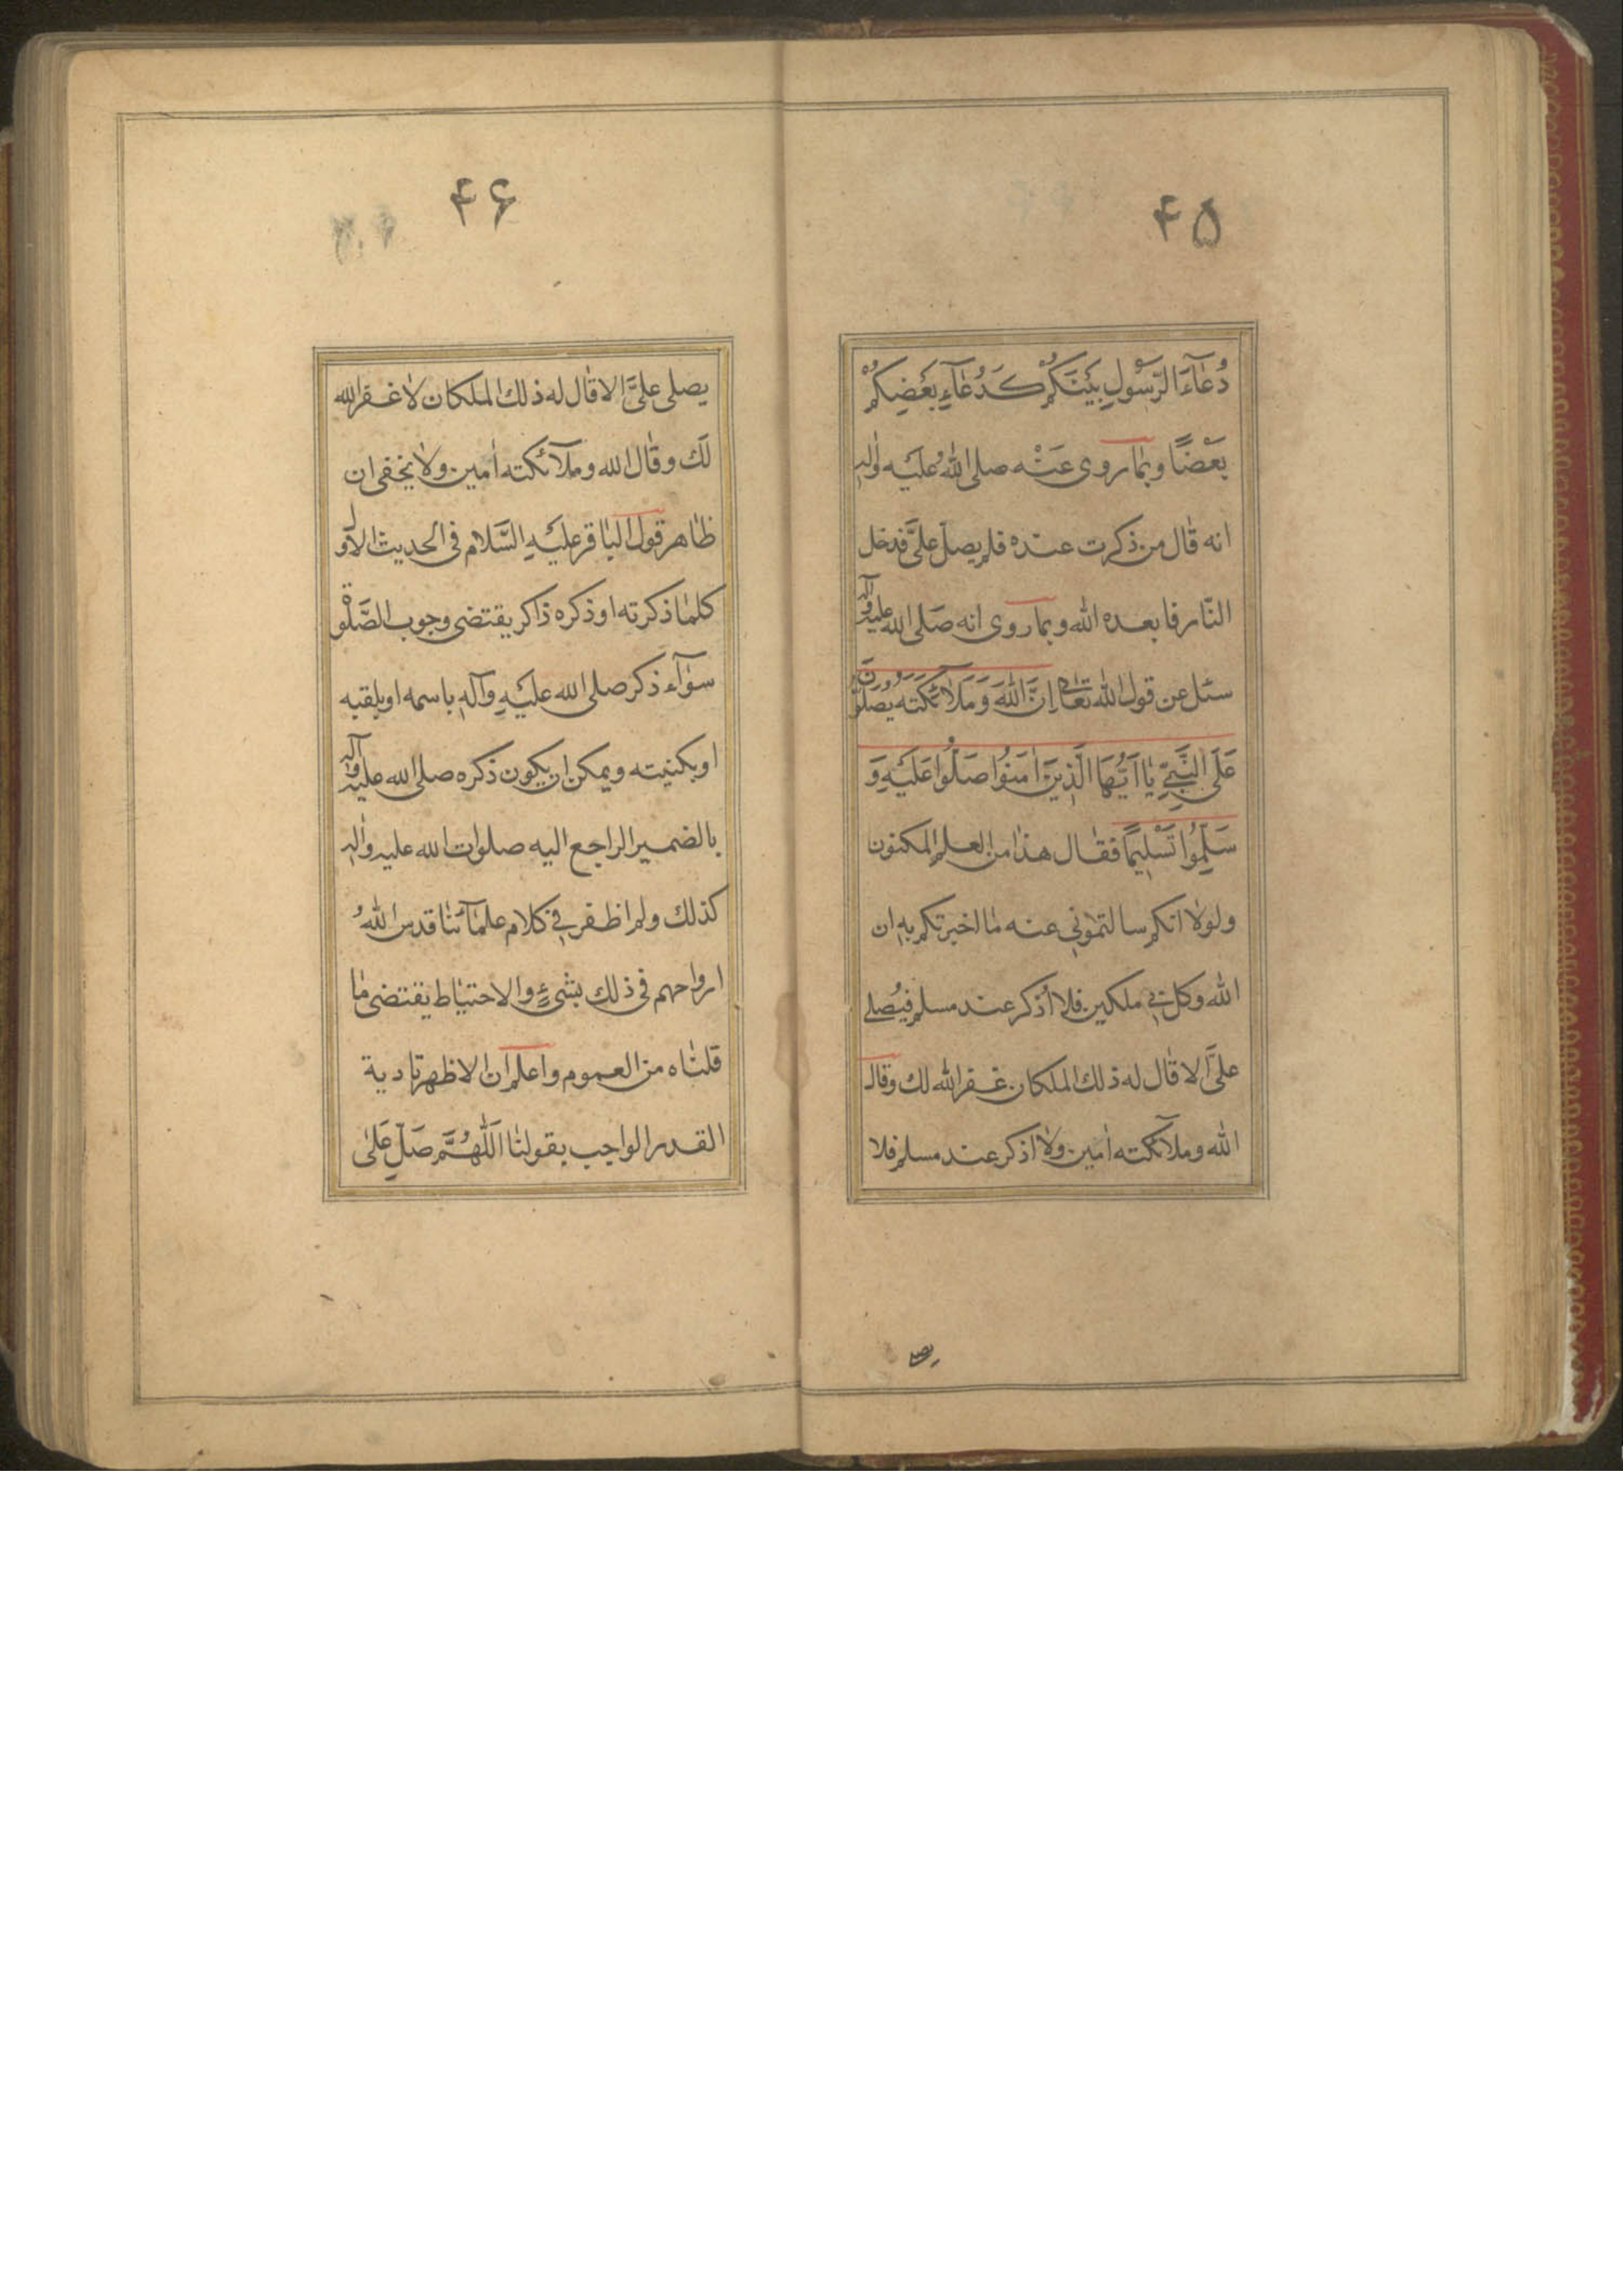 ۴۵
دُعٰاءَ الرَّسُولِ بَيْنَكُمْ كَدُعٰآءِ بَعْضِكُمْ
بَعْضًا وبما روى عَنْه صلى اللهُ عليه واٰلهِ
انه قٰال من ذكرت عنده فلم يصل علىَّ فدخل
النّار فابعده الله وبما روى انه صَلى الله عليه وآله
سئل عن قول الله تعالى اِنَّ اللهَ وَمَلاٰئكَتَه يُصَلُّونَ
عَلَى النَّبِيِّ يٰا اَيُّهَا الَّذِينَ اٰمَنُوا صَلُّوا عَلَيْهِ وَ
سَلِّمُوا تَسْلِيمًا فقٰال هذا من العلم المكنون
ولولاٰ انكم سالتمونى عنه مٰا اخبرتكم به ان
الله وكل بى ملكين فلا اُذكر عند مسلم فيُصلى
علىَّ الا قٰال له ذلك الملكان غفر الله لك وقال
الله وملآئكته اٰمين ولاٰ اذكر عند مسلم فلا
يصلى
۴۶
يصلى علىَّ الا قٰال له ذلك الملكان لاٰ غفر الله
لَك وقٰال الله وملآئكته اٰمين ولاٰ يخفى ان
ظٰاهر قول البٰاقر عليْهِ السَّلاٰم فى الحديث الاَول
كلمٰا ذكرته او ذكره ذاكر يقتضى وجوب الصَّلوٰة
سوٰآء ذكر صلى الله عليْهِ وآلهِ باسمه او بلقبه
او بكنيته ويمكن ان يكون ذكره صلى الله عليه وآله
بالضمير الراجع اليه صلوات الله عليه واٰلهِ
كذلك ولم اظفر فى كلام علمٰآئنٰا قدس اللهُ
ارواحهم فى ذلك بشىءٍ والاحتيٰاط يقتضى مٰا
قلنٰاه من العموم واعلم ان الاظهر تادية
القدر الواجب بقولنٰا اَللّٰهُمَّ صَلِّ عَلىٰ